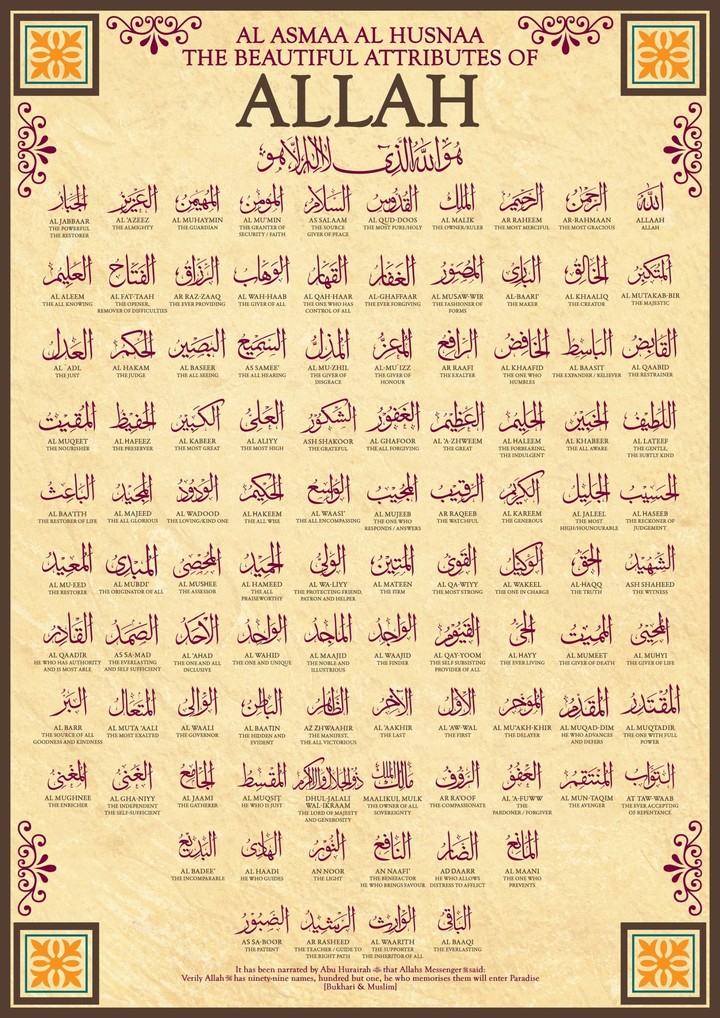 AL ASMAA AL HUSNAA
THE BEAUTIFUL ATTRIBUTES OF
ALLAH
هُوَ اللهُ الَّذِي لَا إِلٰهَ إِلَّا هُوَ
الله
ALLAAH
ALLAH
الرحمن
AR-RAHMAAN
THE MOST GRACIOUS
الرحيم
AR RAHEEM
THE MOST MERCIFUL
الملك
AL MALIK
THE OWNER/RULER
القدوس
AL QUD-DOOS
THE MOST PURE/HOLY
السلام
AS SALAAM
THE SOURCE
GIVER OF PEACE
المؤمن
AL MU'MIN
THE GRANTER OF
SECURITY / FAITH
المهيمن
AL MUHAYMIN
THE GUARDIAN
العزيز
AL 'AZEEZ
THE ALMIGHTY
الجبار
AL JABBAAR
THE POWERFUL
THE RESTORER
المتكبر
AL MUTAKAB-BIR
THE MAJESTIC
الخالق
AL KHAALIQ
THE CREATOR
البارئ
AL-BAARI'
THE MAKER
المصور
AL MUSAW-WIR
THE FASHIONER OF
FORMS
الغفار
AL-GHAFFAAR
THE EVER FORGIVING
القهار
AL QAH-HAAR
THE ONE WHO HAS
CONTROL OF ALL
الوهاب
AL WAH-HAAB
THE GIVER OF ALL
الرزاق
AR RAZ-ZAAQ
THE EVER PROVIDING
الفتاح
AL FAT-TAAH
THE OPENER,
REMOVER OF DIFFICULTIES
العليم
AL ALEEM
THE ALL KNOWING
القابض
AL QAABID
THE RESTRAINER
الباسط
AL BAASIT
THE EXPANDER / RELIEVER
الخافض
AL KHAAFID
THE ONE WHO
HUMBLES
الرافع
AR RAAFI
THE EXALTER
المعز
AL-MU`IZZ
THE GIVER OF
HONOUR
المذل
AL MU-ZHIL
THE GIVER OF
DISGRACE
السميع
AS SAMEE'
THE ALL HEARING
البصير
AL BASEER
THE ALL SEEING
الحكم
AL HAKAM
THE JUDGE
العدل
AL `ADL
THE JUST
اللطيف
AL LATEEF
THE GENTLE,
THE SUBTLY KIND
الخبير
AL KHABEER
THE ALL AWARE
الحليم
AL HALEEM
THE FORBEARING,
THE INDULGENT
العظيم
AL 'A-ZHWEEM
THE GREAT
الغفور
AL GHAFOOR
THE ALL FORGIVING
الشكور
ASH SHAKOOR
THE GRATEFUL
العلي
AL ALIYY
THE MOST HIGH
الكبير
AL KABEER
THE MOST GREAT
الحفيظ
AL HAFEEZ
THE PRESERVER
المقيت
AL MUQEET
THE NOURISHER
الحسيب
AL HASEEB
THE RECKONER OF
JUDGEMENT
الجليل
AL JALEEL
THE MOST
HIGH/HOUNOURABLE
الكريم
AL KAREEM
THE GENEROUS
الرقيب
AR RAQEEB
THE WATCHFUL
المجيب
AL MUJEEB
THE ONE WHO
RESPONDS / ANSWERS
الواسع
AL WAASI'
THE ALL ENCOMPASSING
الحكيم
AL HAKEEM
THE ALL WISE
الودود
AL WADOOD
THE LOVING/KIND ONE
المجيد
AL MAJEED
THE ALL GLORIOUS
الباعث
AL BAA'ITH
THE RESTORER OF LIFE
الشهيد
ASH SHAHEED
THE WITNESS
الحق
AL-HAQQ
THE TRUTH
الوكيل
AL WAKEEL
THE ONE IN CHARGE
القوي
AL QA-WIYY
THE MOST STRONG
المتين
AL MATEEN
THE FIRM
الولي
AL WA-LIYY
THE PROTECTING FRIEND,
PATRON AND HELPER
الحميد
AL HAMEED
THE ALL
PRAISEWORTHY
المحصي
AL MUSHEE
THE ASSESSOR
المبدئ
AL MUBDI'
THE ORIGINATOR OF ALL
المعيد
AL MU-EED
THE RESTORER
المحيي
AL MUHYI
THE GIVER OF LIFE
المميت
AL MUMEET
THE GIVER OF DEATH
الحي
AL HAYY
THE EVER LIVING
القيوم
AL QAY-YOOM
THE SELF SUBSISTING
PROVIDER OF ALL
الواجد
AL WAAJID
THE FINDER
الماجد
AL MAAJID
THE NOBLE AND
ILLUSTRIOUS
الواحد
AL WAHID
THE ONE AND UNIQUE
الأحد
AL 'AHAD
THE ONE AND ALL
INCLUSIVE
الصمد
AS SA-MAD
THE EVERLASTING
AND SELF SUFFICIENT
القادر
AL QAADIR
HE WHO HAS AUTHORITY
AND IS MOST ABLE
المقتدر
AL MUQTADIR
THE ONE WITH FULL
POWER
المقدم
AL MUQAD-DIM
HE WHO ADVANCES
AND DEFERS
المؤخر
AL MU'AKH-KHIR
THE DELAYER
الأول
AL 'AW-WAL
THE FIRST
الآخر
AL 'AAKHIR
THE LAST
الظاهر
AZ ZHWAAHIR
THE MANIFEST,
THE ALL VICTORIOUS
الباطن
AL BAATIN
THE HIDDEN AND
EVIDENT
الوالي
AL WAALI
THE GOVERNOR
المتعال
AL MUTA 'AALI
THE MOST EXALTED
البر
AL BARR
THE SOURCE OF ALL
GOODNESS AND KINDNESS
التواب
AT TAW-WAAB
THE EVER ACCEPTING
OF REPENTANCE.
المنتقم
AL MUN-TAQIM
THE AVENGER
العفو
AL 'A-FUWW
THE
PARDONER / FORGIVER
الرؤوف
AR RA'OOF
THE COMPASSIONATE
مالك الملك
MAALIKUL MULK
THE OWNER OF ALL
SOVEREIGNTY
ذو الجلال والإكرام
DHUL-JALALI
WAL-IKRAAM
THE LORD OF MAJESTY
AND GENEROSITY
المقسط
AL MUQSIT
HE WHO IS JUST
الجامع
AL JAAMI
THE GATHERER
الغني
AL GHA-NIYY
THE INDEPENDENT
THE SELF-SUFFICIENT
المغني
AL MUGHNEE
THE ENRICHER
المانع
AL MAANI
THE ONE WHO
PREVENTS
الضار
AD DAARR
HE WHO ALLOWS
DISTRESS TO AFFLICT
النافع
AN NAAFI'
THE BENEFACTOR
HE WHO BRINGS FAVOUR
النور
AN NOOR
THE LIGHT
الهادي
AL HAADI
HE WHO GUIDES
البديع
AL BADEE'
THE INCOMPARABLE
الباقي
AL BAAQI
THE EVERLASTING
الوارث
AL WAARITH
THE SUPPORTER
THE INHERITOR OF ALL
الرشيد
AR RASHEED
THE TEACHER / GUIDE TO
THE RIGHT PATH
الصبور
AS SA-BOOR
THE PATIENT
It has been narrated by Abu Hurairah that Allahs Messenger ﷺ said:
Verily Allah has ninety-nine names, hundred but one, he who memorises them will enter Paradise
[Bukhari & Muslim]